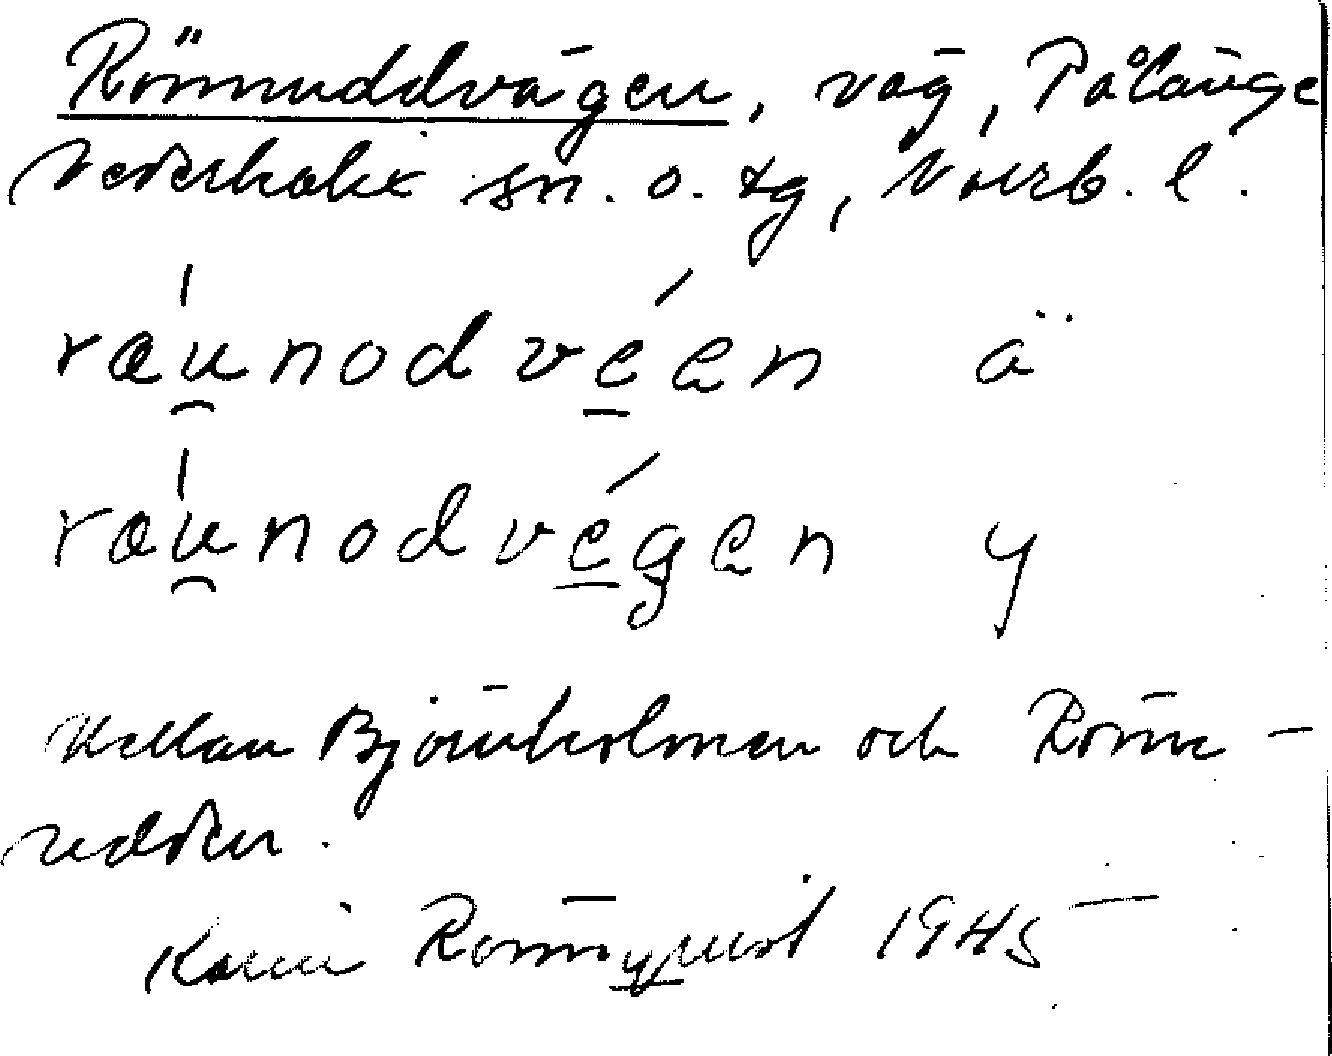 Rönnuddvägen, väg, Pålänge
Nederkalix sn. o. tg, Norrb. l.
ráu̯nodvé̲en ä
ráu̯nodvé̲gen y
Mellan Björnholmen och Rönn-
udden.
Karin Rönnqvist 1945